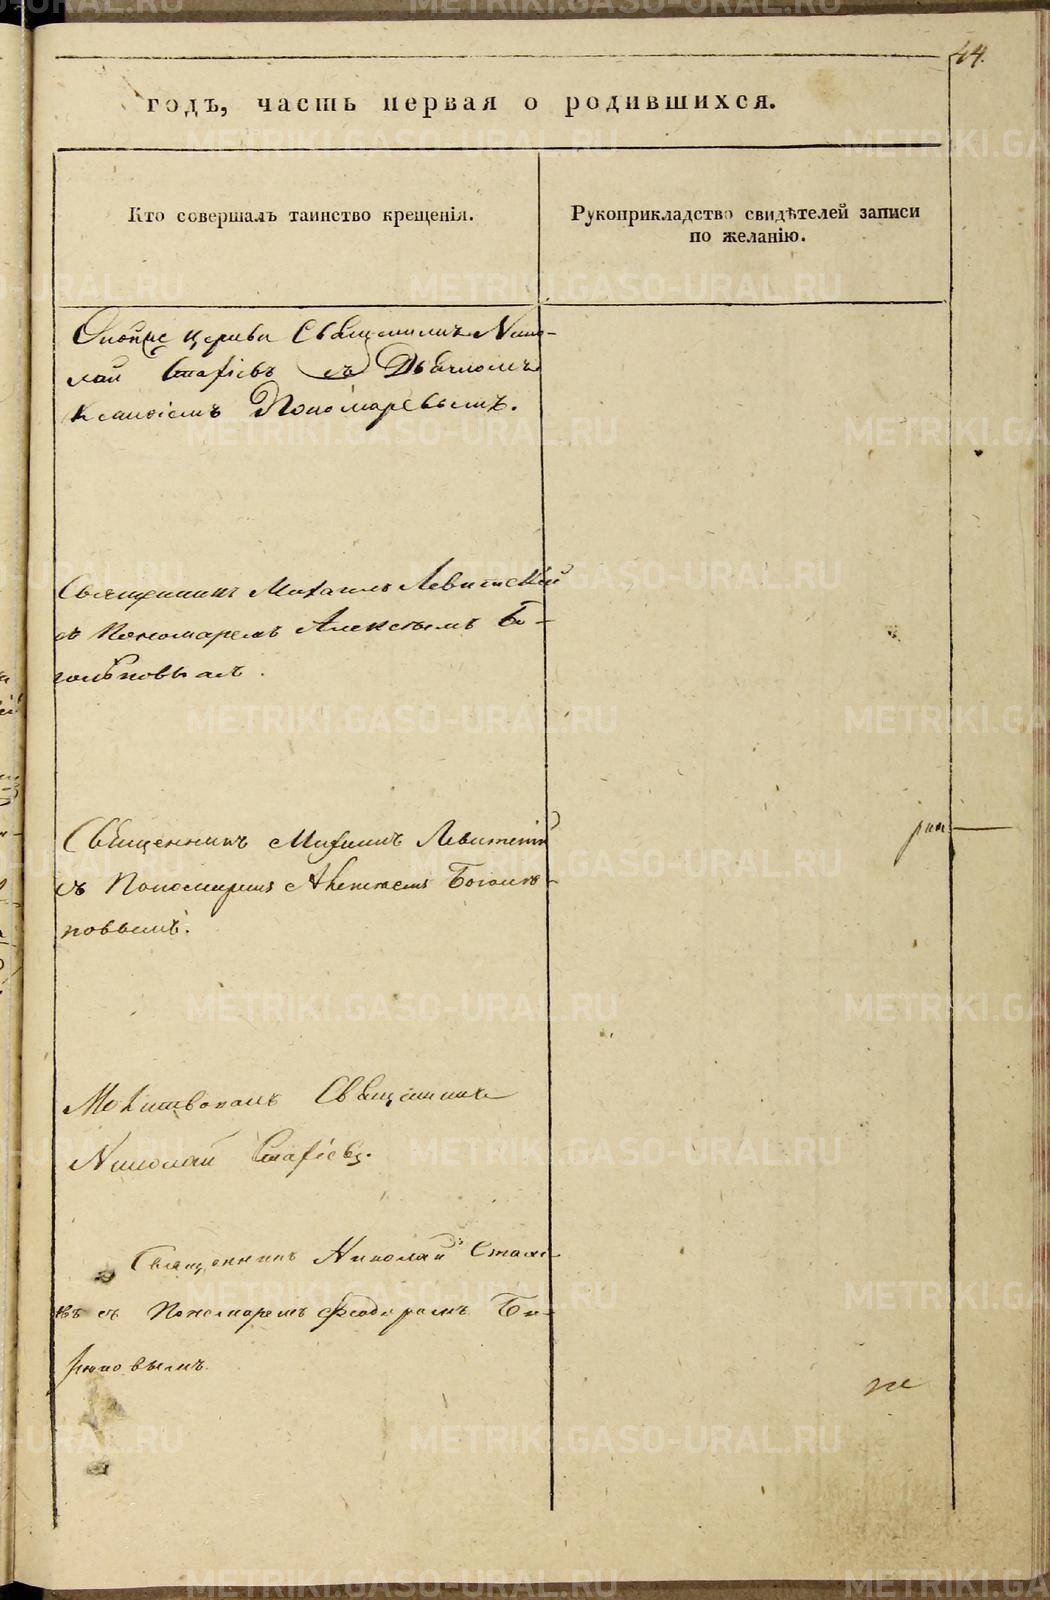 44.
годъ, часть первая о родившихся.
Кто совершалъ таинство крещенія.
Рукоприкладство свидѣтелей записи
по желанію.
церкви Священникъ Нико-
лай Стафіевъ съ Дьячкомъ
Клавдіемъ Пономаревымъ.
Священникъ Михаилъ Левитскій
съ Пономаремъ Алексѣемъ Бо-
голѣповымъ.
Священникъ Михаилъ Левитскій
съ Пономаремъ Алексѣемъ Боголѣ-
повымъ.
Молитвовалъ Священникъ
Николай Стафіевъ.
Священникъ Николай Стафі-
евъ съ Пономаремъ Феодоромъ Би-
рюковымъ.
METRIKI.GASO-URAL.RU